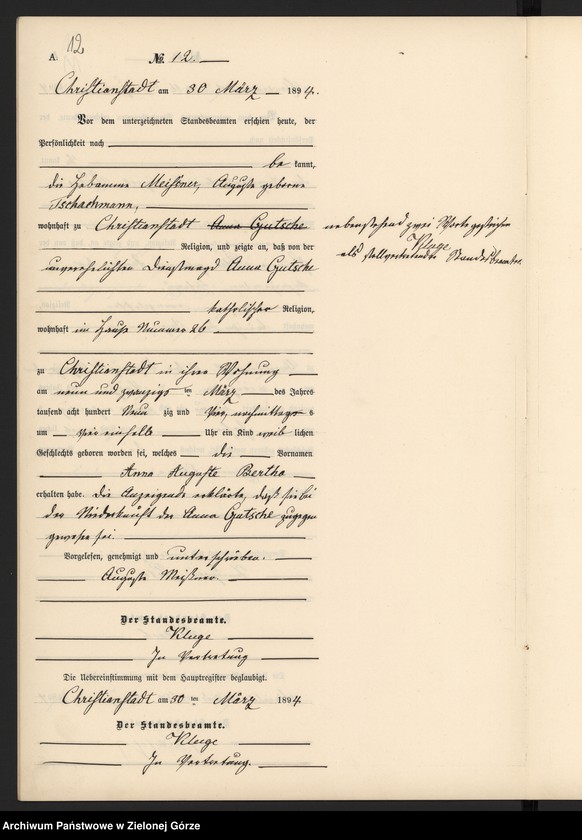 12
A.
No. 12.
Christianstadt am 30 März 1894.
Vor dem unterzeichneten Standesbeamten erschien heute, der
Persönlichkeit nach
be kannt,
die Hebamme Meißner, Auguste geborne
Tschachmann,
wohnhaft zu Christianstadt Anna Gutsche nebenstehend zwei Worte gestrichen
Kluge
als stellvertretender Standesbeamter.
Religion, und zeigte an, daß von der
unverehelichten Dienstmagd Anna Gutsche
katholischer Religion,
wohnhaft im Hause Nummer 26
zu Christianstadt in ihrer Wohnung
am neun und zwanzigs ten März des Jahres
tausend acht hundert Neun zig und Vier, nachmittags s
um vier einhalb Uhr ein Kind weib lichen
Geschlechts geboren worden sei, welches die Vornamen
Anna Auguste Bertha
erhalten habe. Die Anzeigende erklärte, daß sie bei
der Niederkunft der Anna Gutsche zugegen
gewesen sei.
Vorgelesen, genehmigt und unterschrieben.
Auguste Meißner.
Der Standesbeamte.
Kluge
In Vertretung
Die Uebereinstimmung mit dem Hauptregister beglaubigt.
Christianstadt am 30 ten März 1894
Der Standesbeamte.
Kluge
In Vertretung.
Archiwum Państwowe w Zielonej Górze